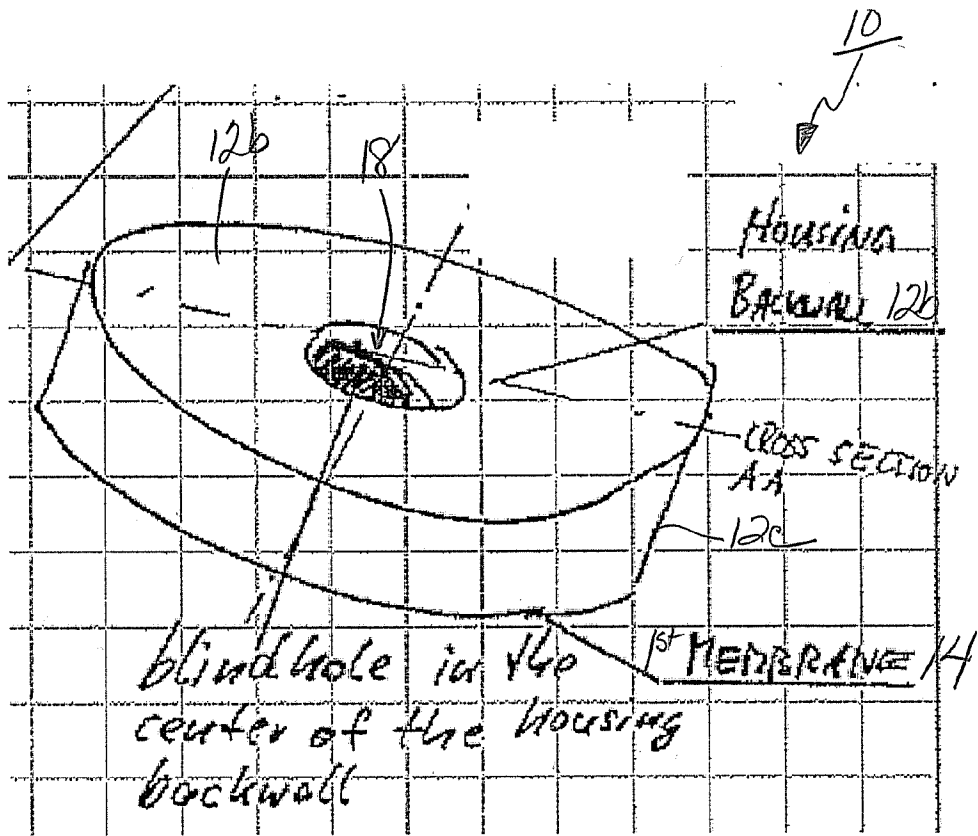 10
12b
18
Housing
Backwall 12b
CROSS SECTION
AA
12c
1st MEMBRANE 14
blindhole in the
center of the housing
backwall